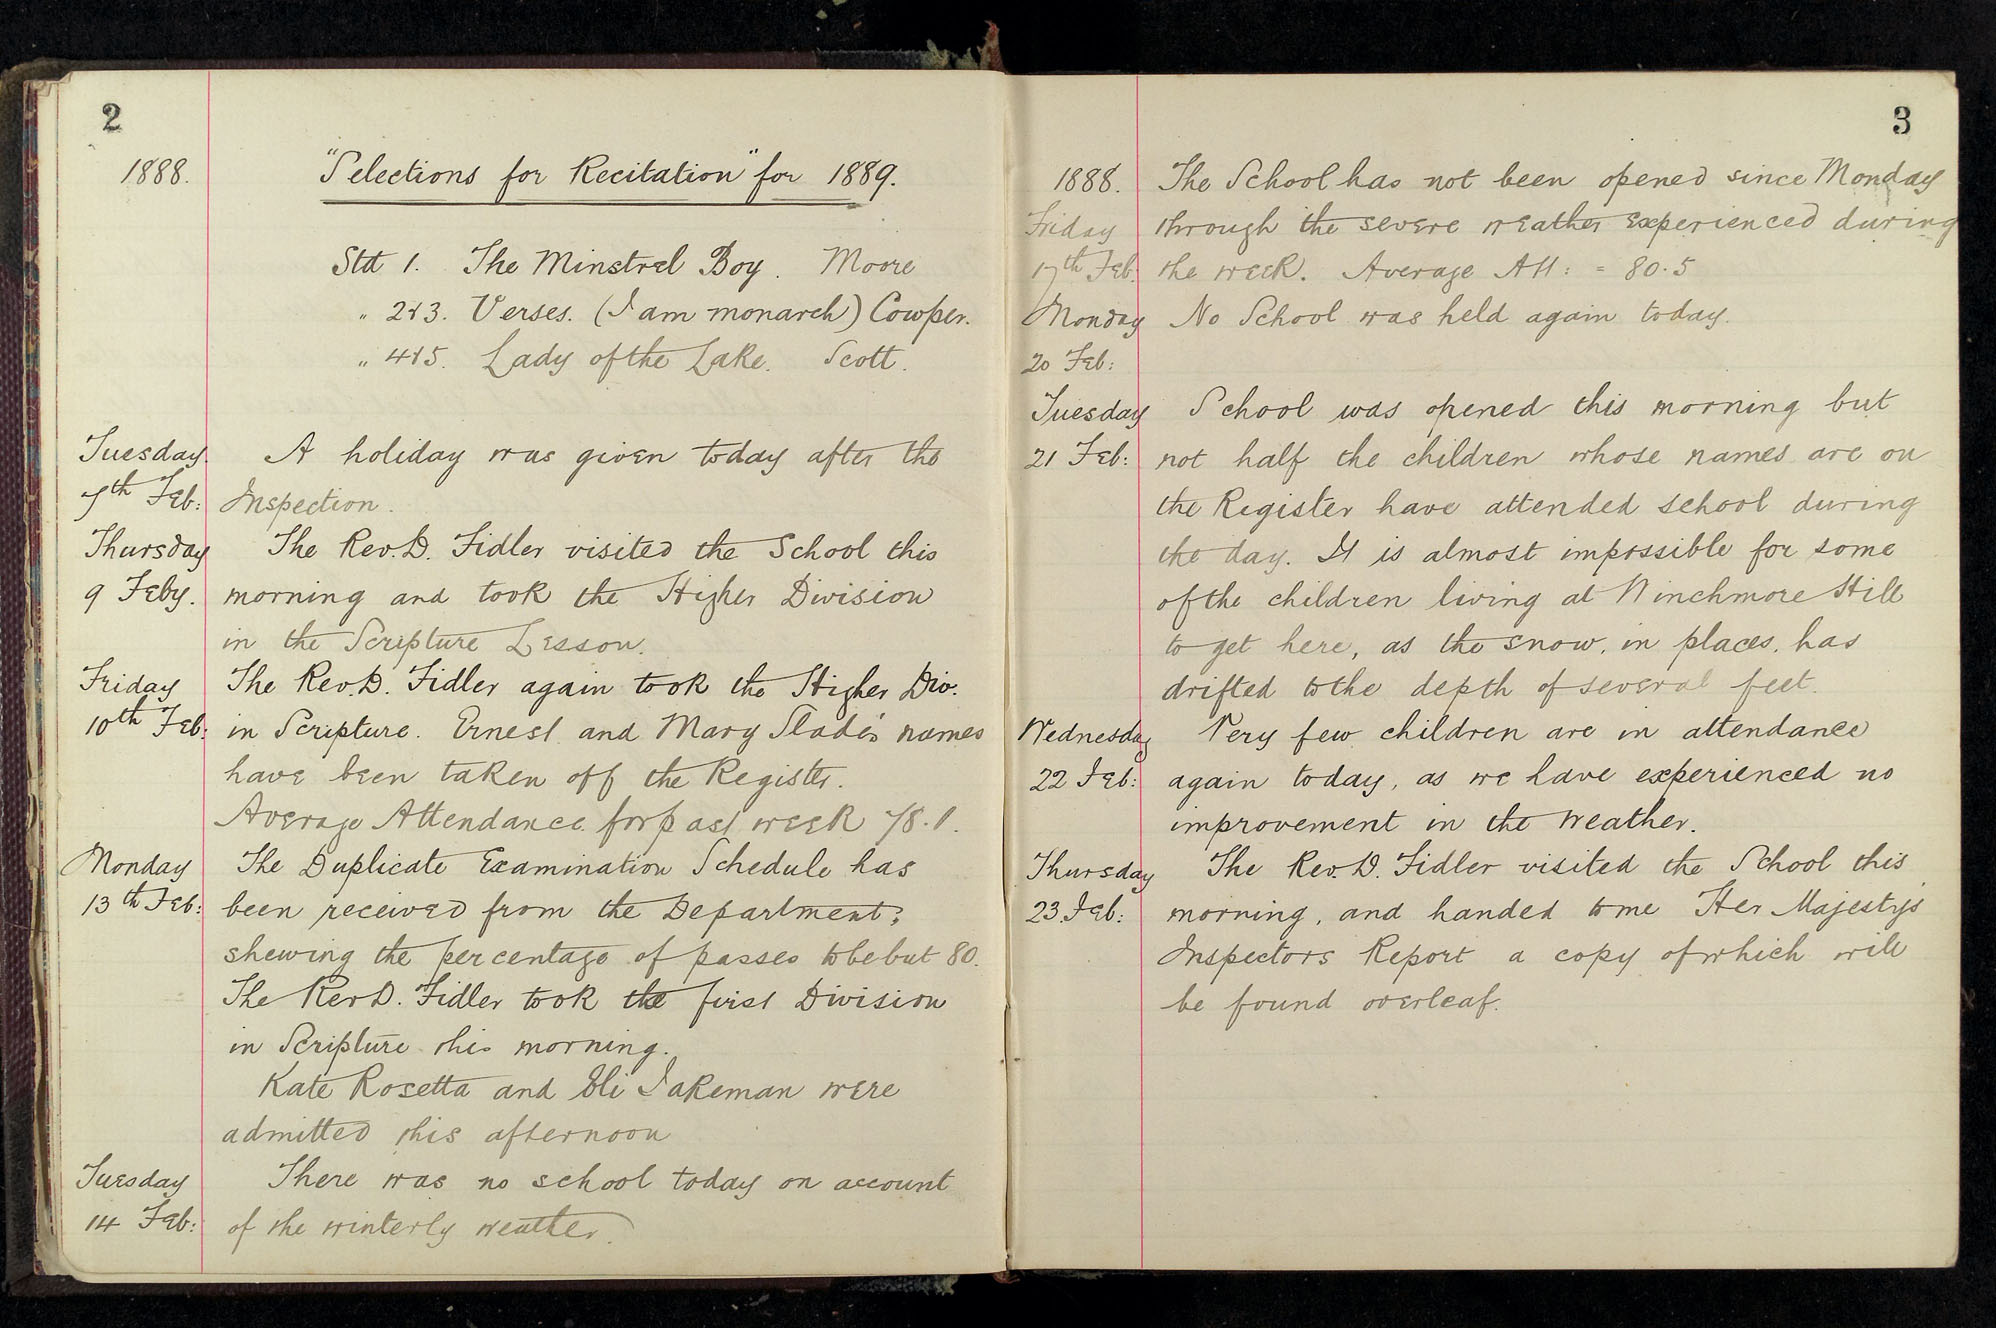 2
1888.
"Selections for Recitation" for 1889.
Std 1. The Minstrel Boy. Moore
" 2&3. Verses. (I am monarch) Cowper.
" 4&5. Lady of the Lake. Scott.
Tuesday A holiday was given today after the
7th Feb: Inspection.
Thursday The Rev. D. Fidler visited the School this
9 Feby. morning and took the Higher Division
in the Scripture Lesson.
Friday The Rev. D. Fidler again took the Higher Div.
10th Feb: in Scripture. Ernest and Mary Slade's names
have been taken off the Register.
Average Attendance for past week 78.1.
Monday The Duplicate Examination Schedule has
13th Feb: been received from the Department,
shewing the percentage of passes to be but 80.
The Rev D. Fidler took the first Division
in Scripture this morning.
Kate Rosetta and Eli Jakeman were
admitted this afternoon
Tuesday There was no school today on account
14 Feb: of the winterly weather.
3
1888. The School has not been opened since Monday
Friday through the severe weather experienced during
17th Feb: the week. Average Att: = 80.5
Monday No School was held again today.
20 Feb:
Tuesday School was opened this morning but
21 Feb: not half the children whose names are on
the Register have attended school during
the day. It is almost impossible for some
of the children living at Winchmore Hill
to get here, as the snow, in places, has
drifted to the depth of several feet.
Wednesday Very few children are in attendance
22 Feb: again today, as we have experienced no
improvement in the weather.
Thursday The Rev. D. Fidler visited the School this
23. Feb: morning, and handed to me Her Majesty's
Inspectors Report a copy of which will
be found overleaf.